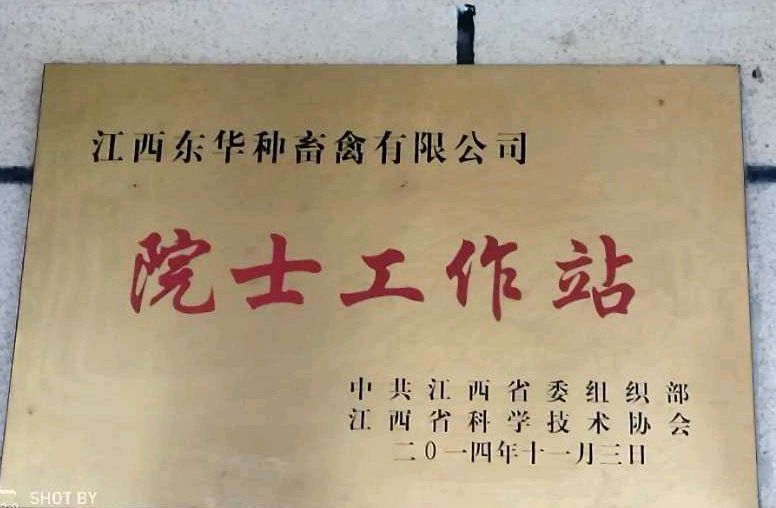 江西东华种畜禽有限公司
院士工作站
中共江西省委组织部
江西省科学技术协会
二０一四年十一月三日
SHOT BY